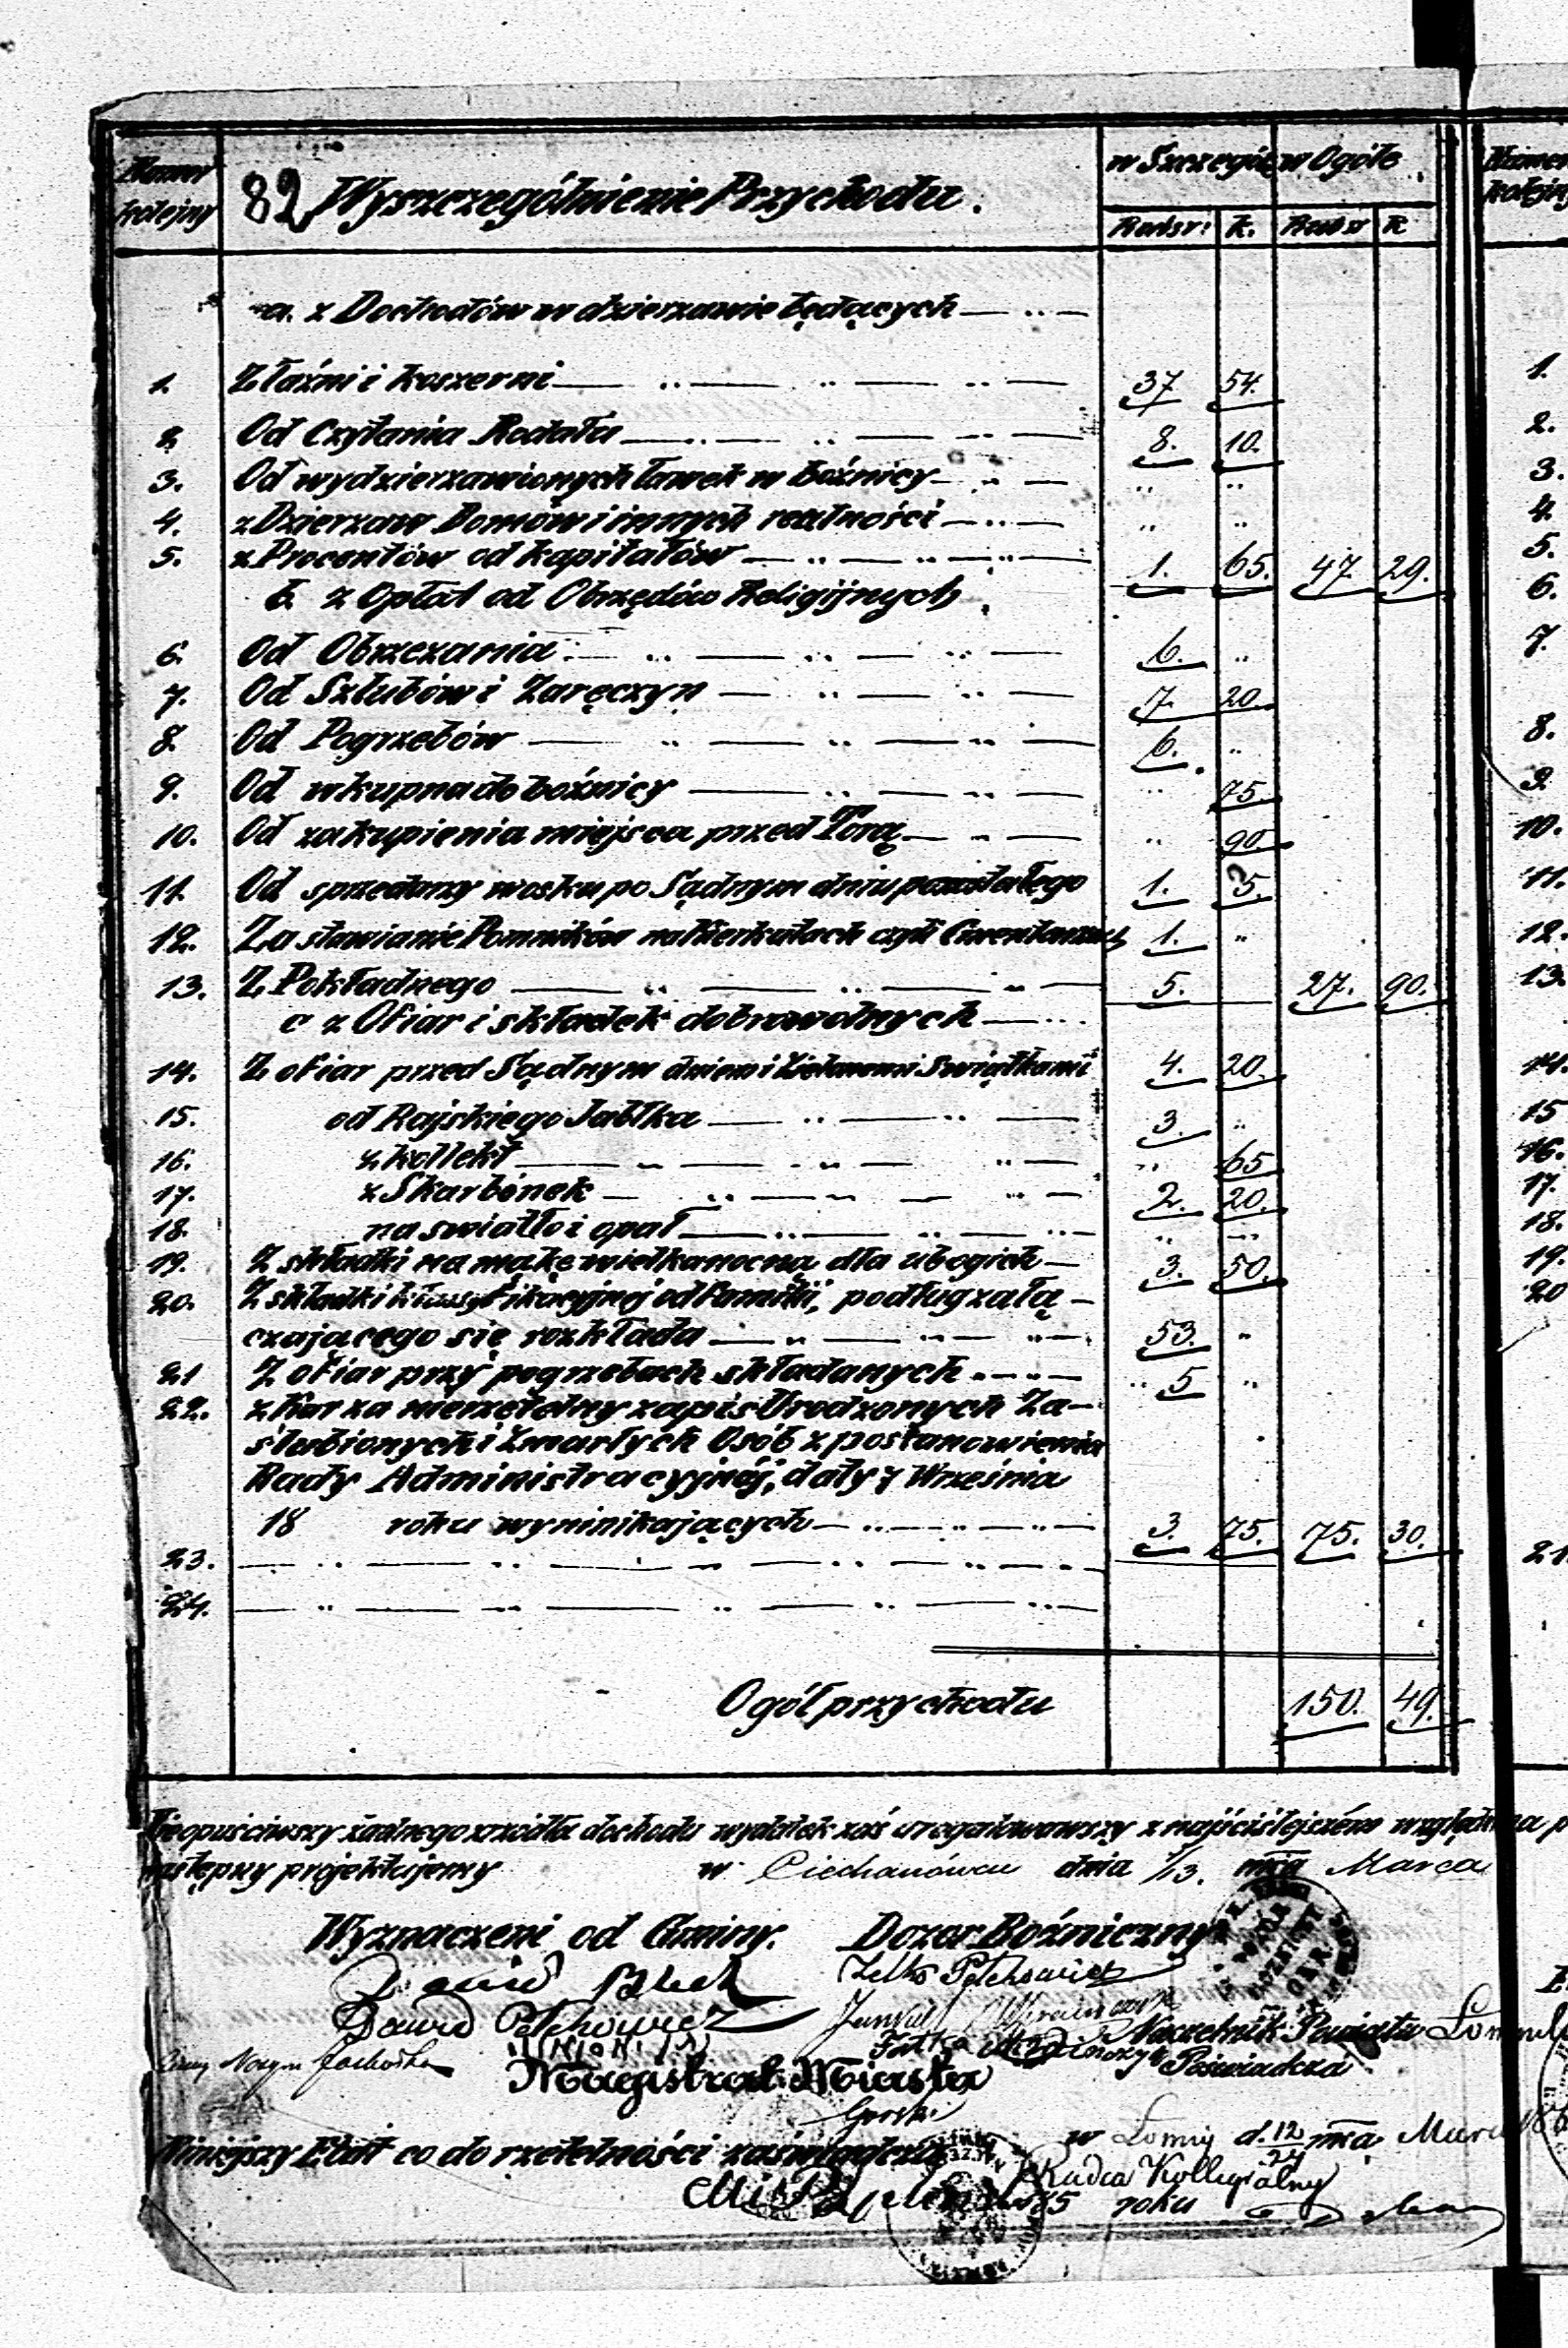 Numer kolejny 82 Wyszczególnienie Przychodu. w Szczególe w Ogóle
Rubsr: K. Rubsr K
a. z Dochodów w dzierzawie będących
1. Z łaźni i koszerni 37 54.
2. Od Czytania Rodału 8. 10.
3. Od wydzierzawionych ławek w boźnicy
4. z Dzierzaw Domów i innych realności
5. z Procentów od kapitałów 1. 65. 47 29.
b. z Opłat od Obrzędów Religijnych
6. Od Obrzezania 6.
7. Od Szlubów i Zaręczyn 7. 20
8. Od Pogrzebów 6.
9. Od wkupna do boźnicy 75.
10. Od zakupienia miejsca przed Torą 90
11. Od sprzedarzy wosku po Sądnym dniu pozostałego 1. 5.
12. Za stawianie Pomników na Kierkutach czyli Cmentarzach 1.
13. Z Pokładnego 5. 27. 90.
c z Ofiar i składek dobrowolnych
14. Z ofiar przed Sądnym dniem i Zielonemi Swiątkami 4. 20.
15. od Rajskiego Jabłka 3.
16. z kollekt 65
17. z Skarbonek 2. 20.
18. na swiatło i opał
19. Z składki na mąkę wielkanocną dla ubogich 3. 50.
20. Z składki klassyfikacyjnej od Familii, podług załą-
czającego się rozkłada 53.
21 Z ofiar przy pogrzebach składanych 5
22. z Kar za nierzetelny zapis Urodzonych Za-
slubionych i Zmarłych Osób z postanowienia
Rady Administracyjnéj, daty 7 Września
18 roku wyninikających 3. 75. 75. 30.
23.
24.
Ogół przychodu 150. 49.
Nieopuściwszy żadnego zrzódła dochodu wydatek zaś uregulowawszy z najściślejszém względem na
następny projektujemy w Ciechanówcu dnia 1/13. mca Marca
Wyznaczeni od Gminy. Dozor Boźniczny
Dawid Pelchowicz Zelko Pelchowicz
Naczelnik Powiatu
Poświadcza
Magistrat Miasta
Gorski
Niniejszy Etat co do rzetelności zaświadcza
w Łomży d. 12/24 mca Marca
Radca Kollegialny
roku